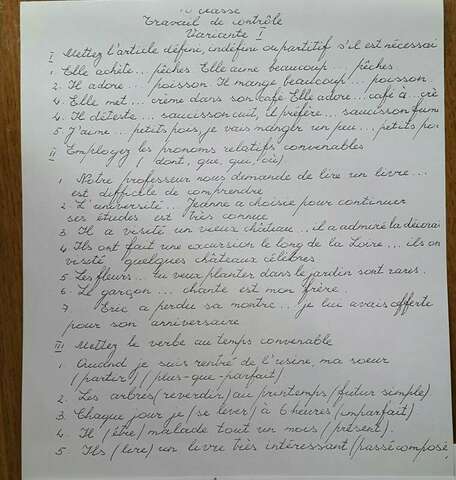 classe
Travail de contrôle
Variante I
I Mettez l'article défini, indéfini ou partitif s'il est nécessai
1. Elle achète... pêches. Elle aime beaucoup... pêches.
2. Il adore... poisson. Il mange beaucoup... poisson.
4. Elle met... crème dans son café Elle adore... café à... crè
4. Il déteste... saucisson cuit, il préfère... saucisson fumé
5. J'aime... petits pois, je vais manger un peu... petits poi
II Employez les pronoms relatifs convenables
(dont, que, qui, où)
1. Notre professeur nous demande de lire un livre...
est difficile de comprendre
2. L'université... Jeanne a choisie pour continuer
ses études est très connue
3. Il a visité un vieux château... il a admiré la décorat
4. Ils ont fait une excursion le long de la Loire... ils on
visité quelques châteaux célèbres
5. Les fleurs... tu veux planter dans le jardin sont rares.
6. Le garçon... chante est mon frère.
7. Eric a perdu sa montre... je lui avais offerte
pour son anniversaire
III Mettez le verbe au temps convenable
1. Quand je suis rentré de l'usine, ma soeur
(partir) (plus-que-parfait)
2. Les arbres (reverdir) au printemps (futur simple)
3. Chaque jour je (se lever) à 6 heures (imparfait).
4. Il (être) malade tout un mois (présent).
5. Ils (lire) un livre très intéressant (passé composé)